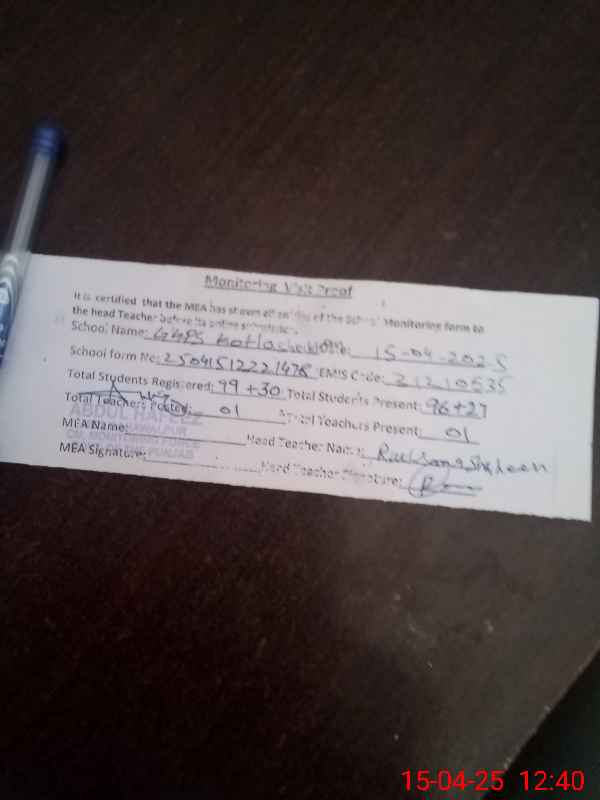 Monitoring Visit Proof
It is certified that the MEA has shown all entries of the School Monitoring form to
the head Teacher before its online submission.
School Name: GGPS Kotla Sheikh Date: 15-04-2025
School form No: 25041512221478 EMIS Code: 31210535
Total Students Registered: 99+30 Total Students Present: 96+27
Total Teachers Posted: 01 Total Teachers Present: 01
ABDUL HAFEEZ
BAHAWALPUR
MEA Name: Head Teacher Name: Rukhsana Shaheen
MONITORING FORCE
PUNJAB
MEA Signature: Head Teacher Signature:
15-04-25 12:40